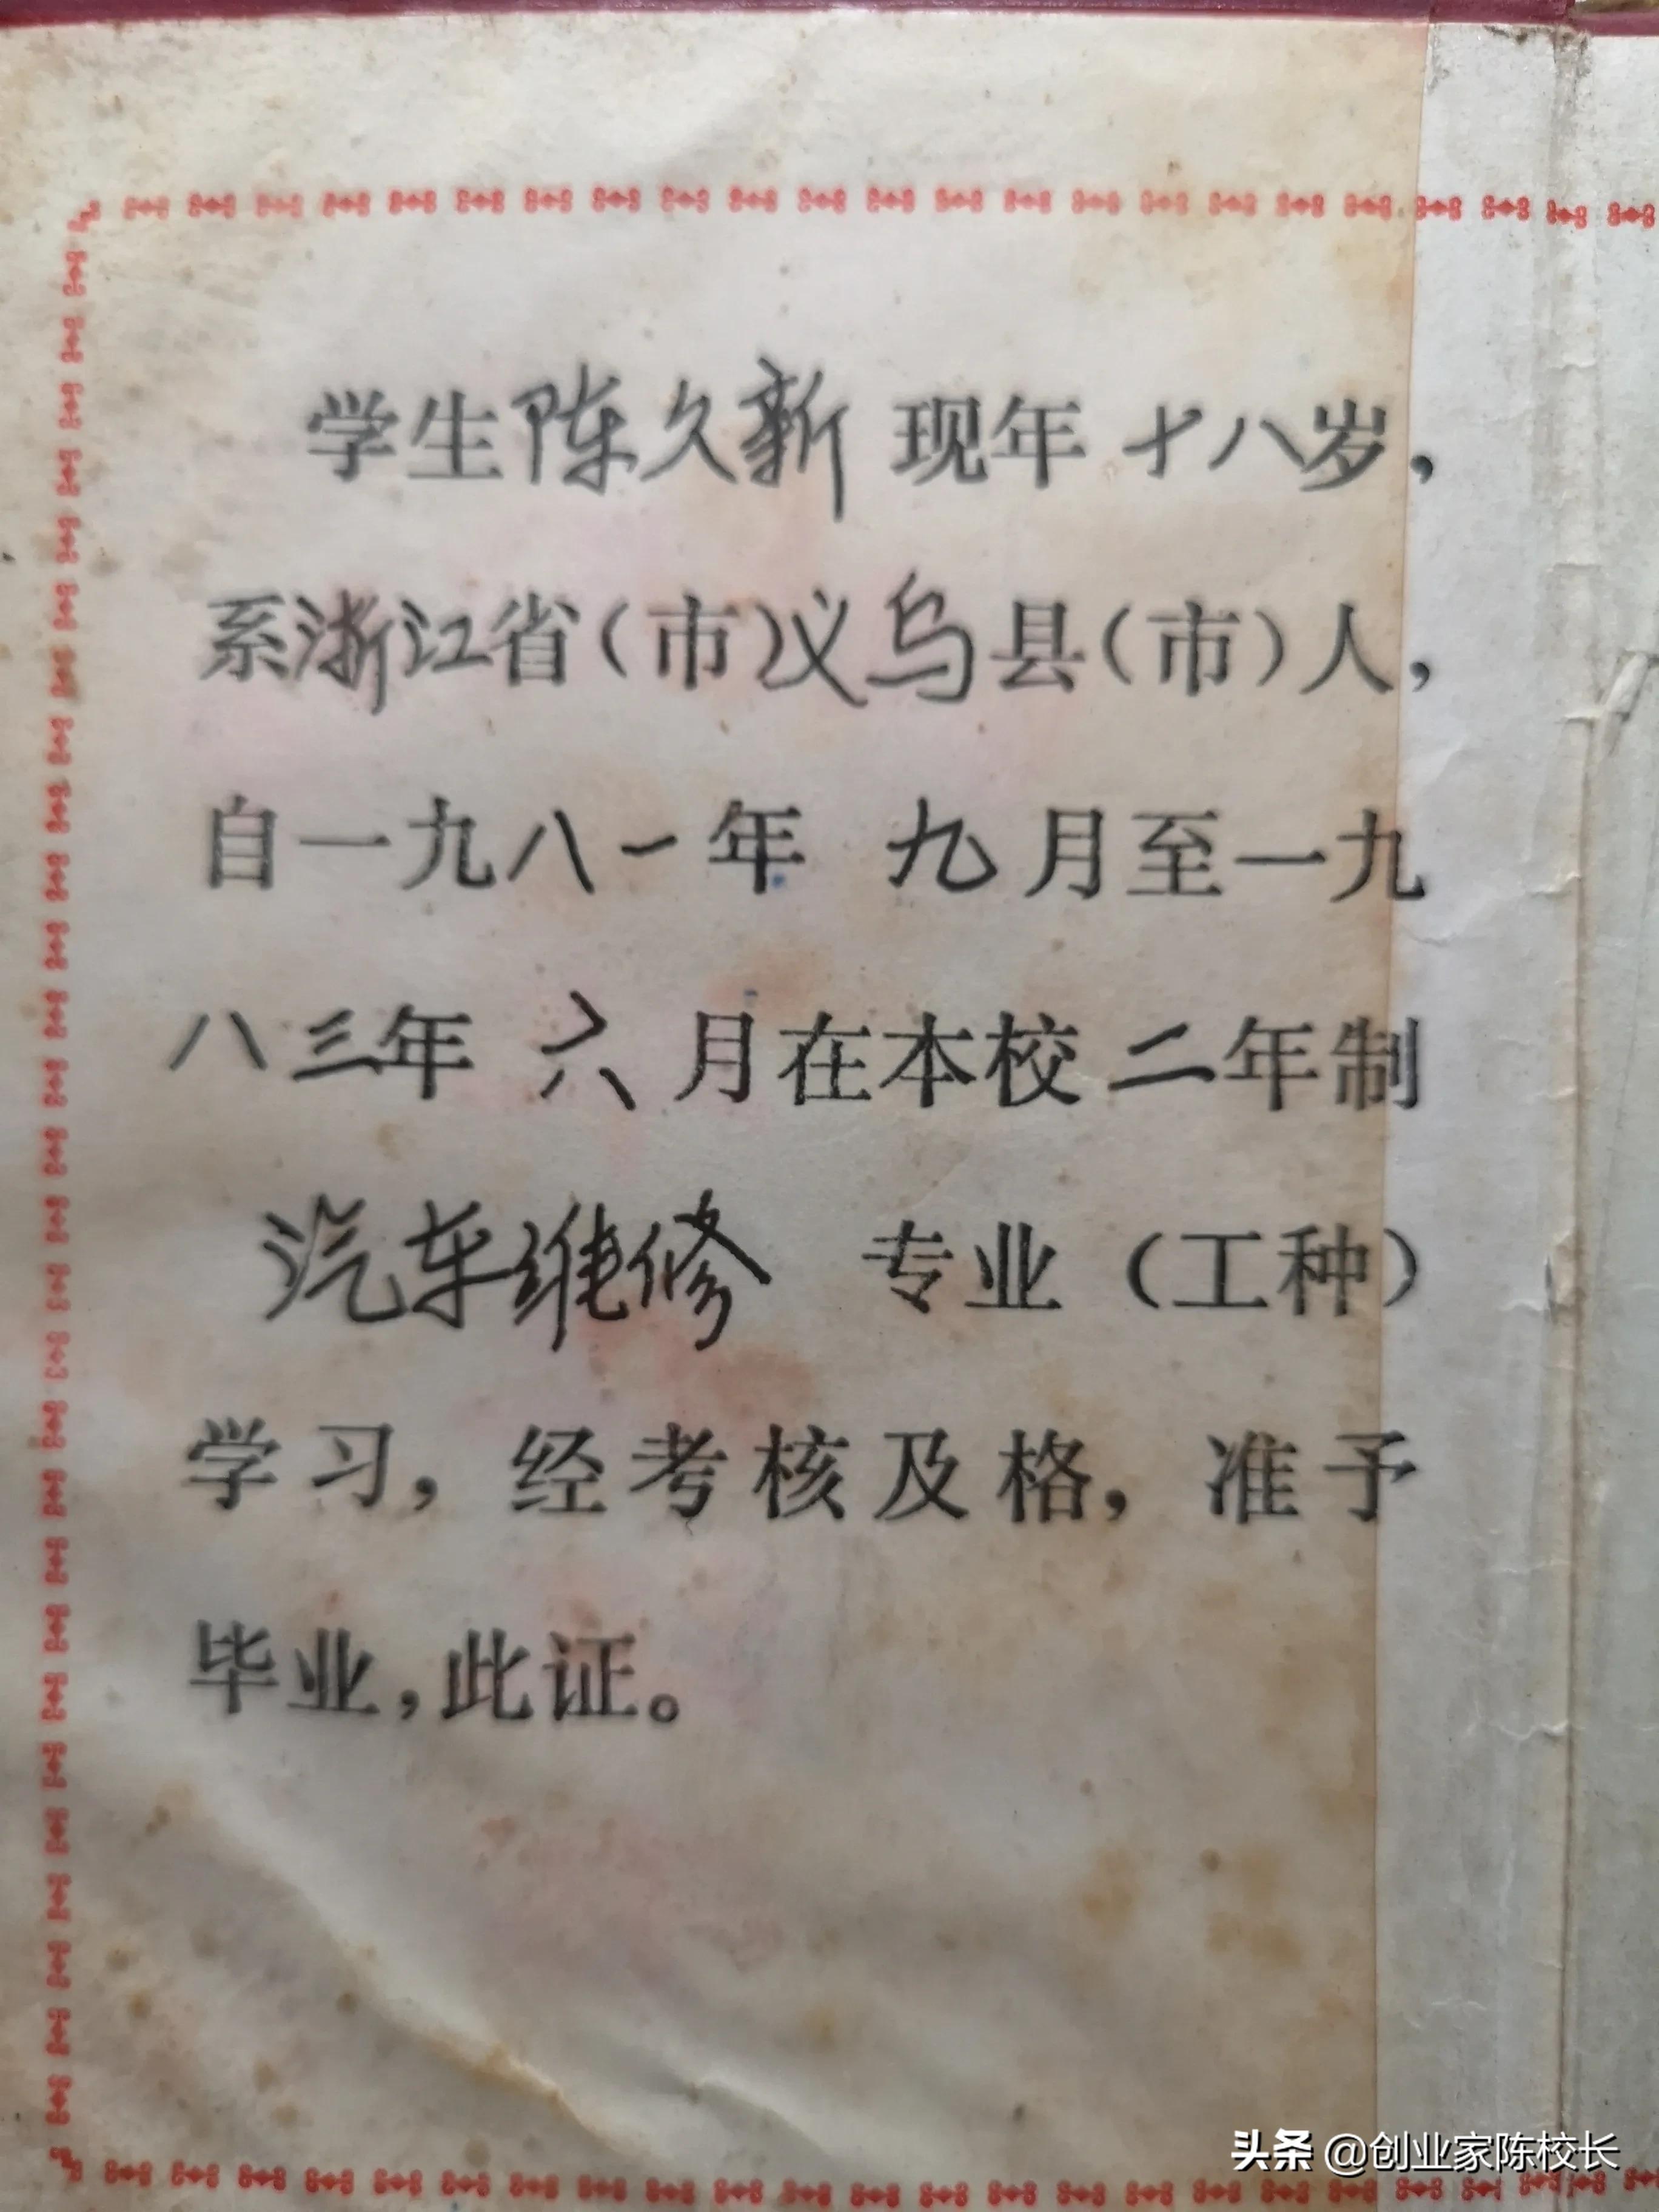 学生陈久新现年十八岁，
系浙江省（市）义乌县（市）人，
自一九八一年九月至一九
八三年六月在本校二年制
汽车维修专业（工种）
学习，经考核及格，准予
毕业，此证。
头条 @创业家陈校长